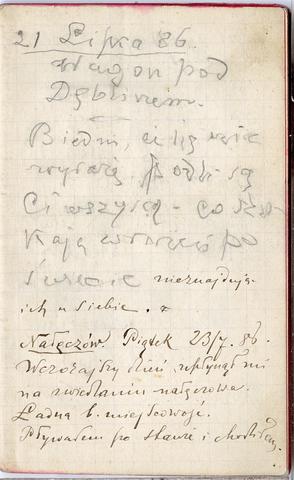 21 Lipca 86.
Wagon pod
Dęblinem.
Biedni, ci
Ci wszyscy - co szu-
kają wrażeń po
świecie nieznajdując
ich u siebie.
Nałęczów. Piątek 23/7. 86.
Wczorajszy dzień upłynął mi
na zwiedzaniu nałęczowa.
Ładna b. miejscowość.
Pływałem po stawie i chodziłem